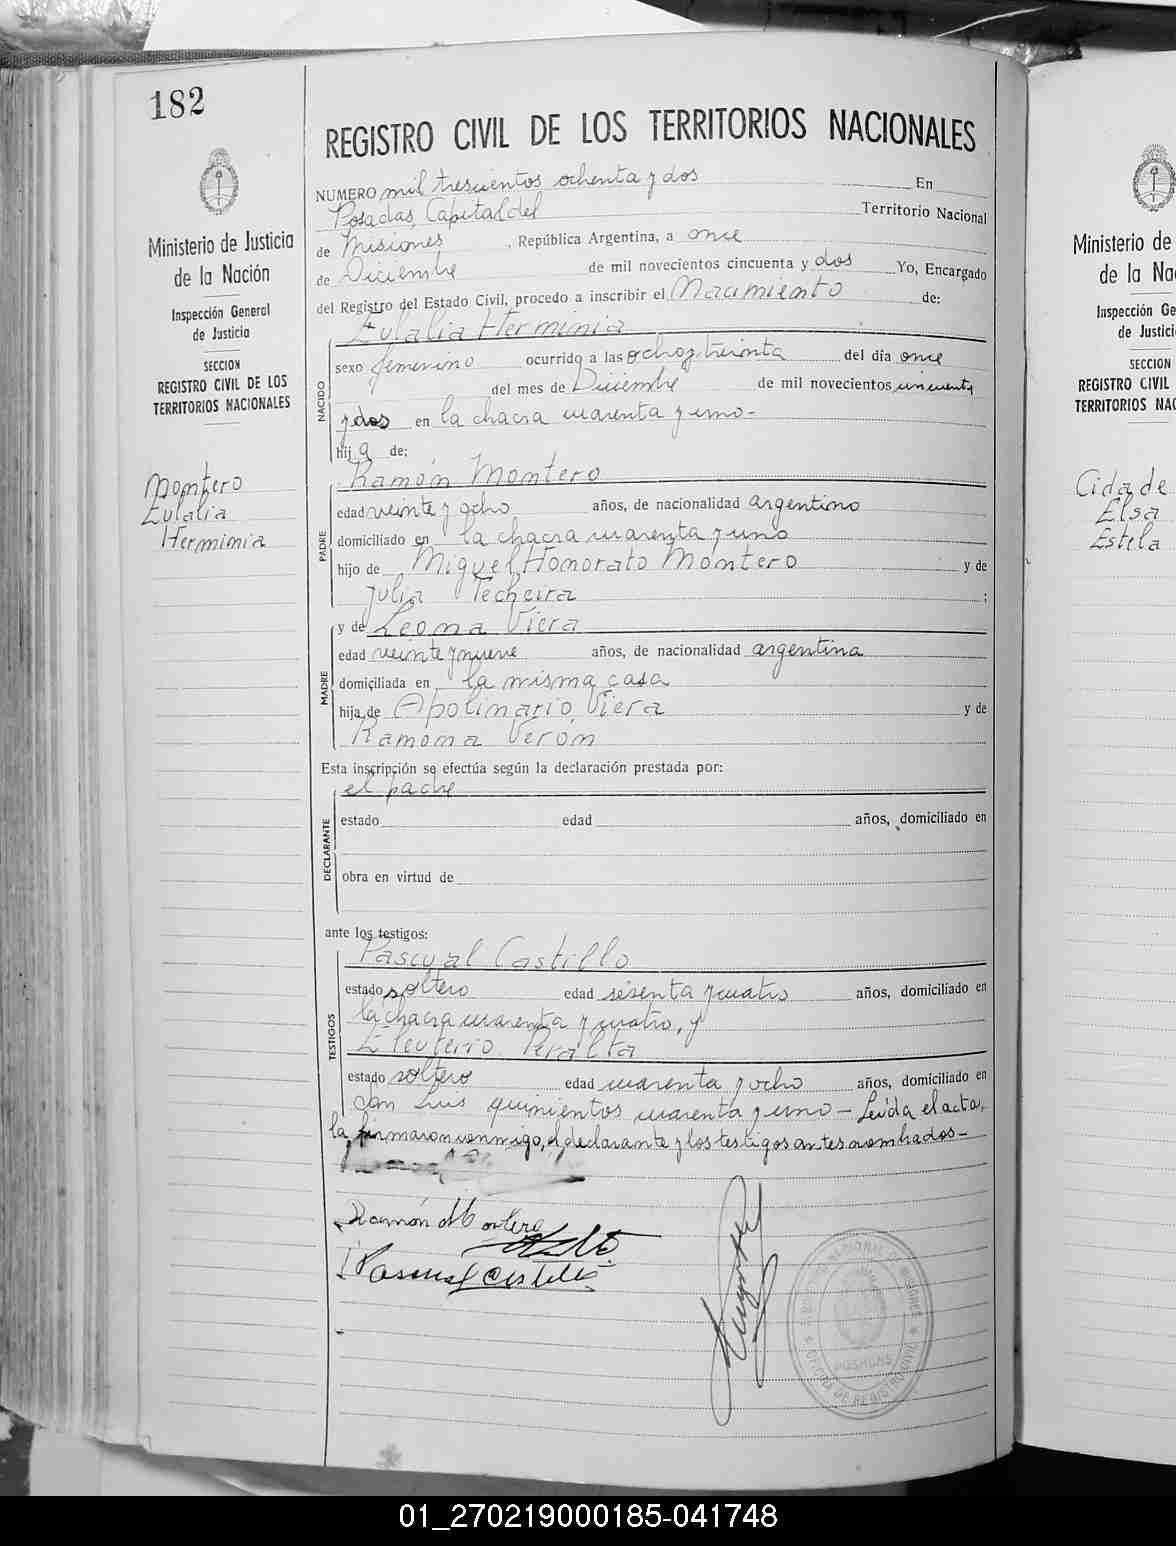 182
Ministerio de Justicia
de la Nación
Inspección General
de Justicia
SECCION
REGISTRO CIVIL DE LOS
TERRITORIOS NACIONALES
Montero
Eulalia
Herminia
REGISTRO CIVIL DE LOS TERRITORIOS NACIONALES
NUMERO mil trescientos ochenta y dos En
Posadas, Capital del Territorio Nacional
de Misiones, República Argentina, a once
de Diciembre de mil novecientos cincuenta y dos Yo, Encargado
del Registro del Estado Civil, procedo a inscribir el Nacimiento de:
Eulalia Herminia
NACIDO
sexo femenino ocurrido a las ocho y treinta del día once
del mes de Diciembre de mil novecientos cincuenta
y dos en la chacra cuarenta y uno-
hija de:
Ramón Montero
PADRE
edad veinte y ocho años, de nacionalidad argentino
domiciliado en la chacra cuarenta y uno
hijo de Miguel Honorato Montero y de
Julia Techeira ;
y de Leona Viera
MADRE
edad veinte y nueve años, de nacionalidad argentina
domiciliada en la misma casa
hija de Apolinario Viera y de
Ramona Veron
Esta inscripción se efectúa según la declaración prestada por:
el padre
DECLARANTE
estado edad años, domiciliado en
obra en virtud de
ante los testigos:
Pascual Castillo
TESTIGOS
estado soltero edad sesenta y cuatro años, domiciliado en
la chacra cuarenta y cuatro, y
Eleuterio Peralta
estado soltero edad cuarenta y ocho años, domiciliado en
San Luis quinientos cuarenta y uno - Leída el acta,
la firmaron conmigo, el declarante y los testigos antes nombrados-
Ramón Montero
Pascual Castillo
POSADAS
Ministerio de
de la Na
Inspección Ge
de Justici
SECCION
REGISTRO CIVIL
TERRITORIOS NAC
Cida de
Elsa
Estela
01_270219000185-041748